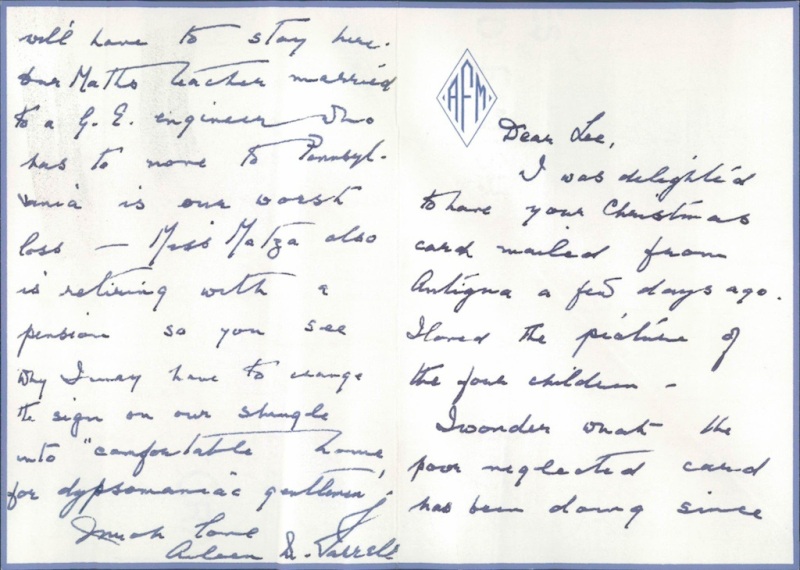 AFM
Dear Lee,
I was delighted
to have your Christmas
card mailed from
Antigua a few days ago.
I loved the picture of
the four children -
I wonder what the
poor neglected card
has been doing since
will have to stay here.
Our Maths teacher married
to a G. E. engineer who
has to move to Pennsyl-
vania is our worst
loss — Miss Matza also
is retiring with a
pension so you see
why I may have to change
the sign on our shingle
into "comfortable home
for dypsomaniac gentlemen".
Much love
Aileen